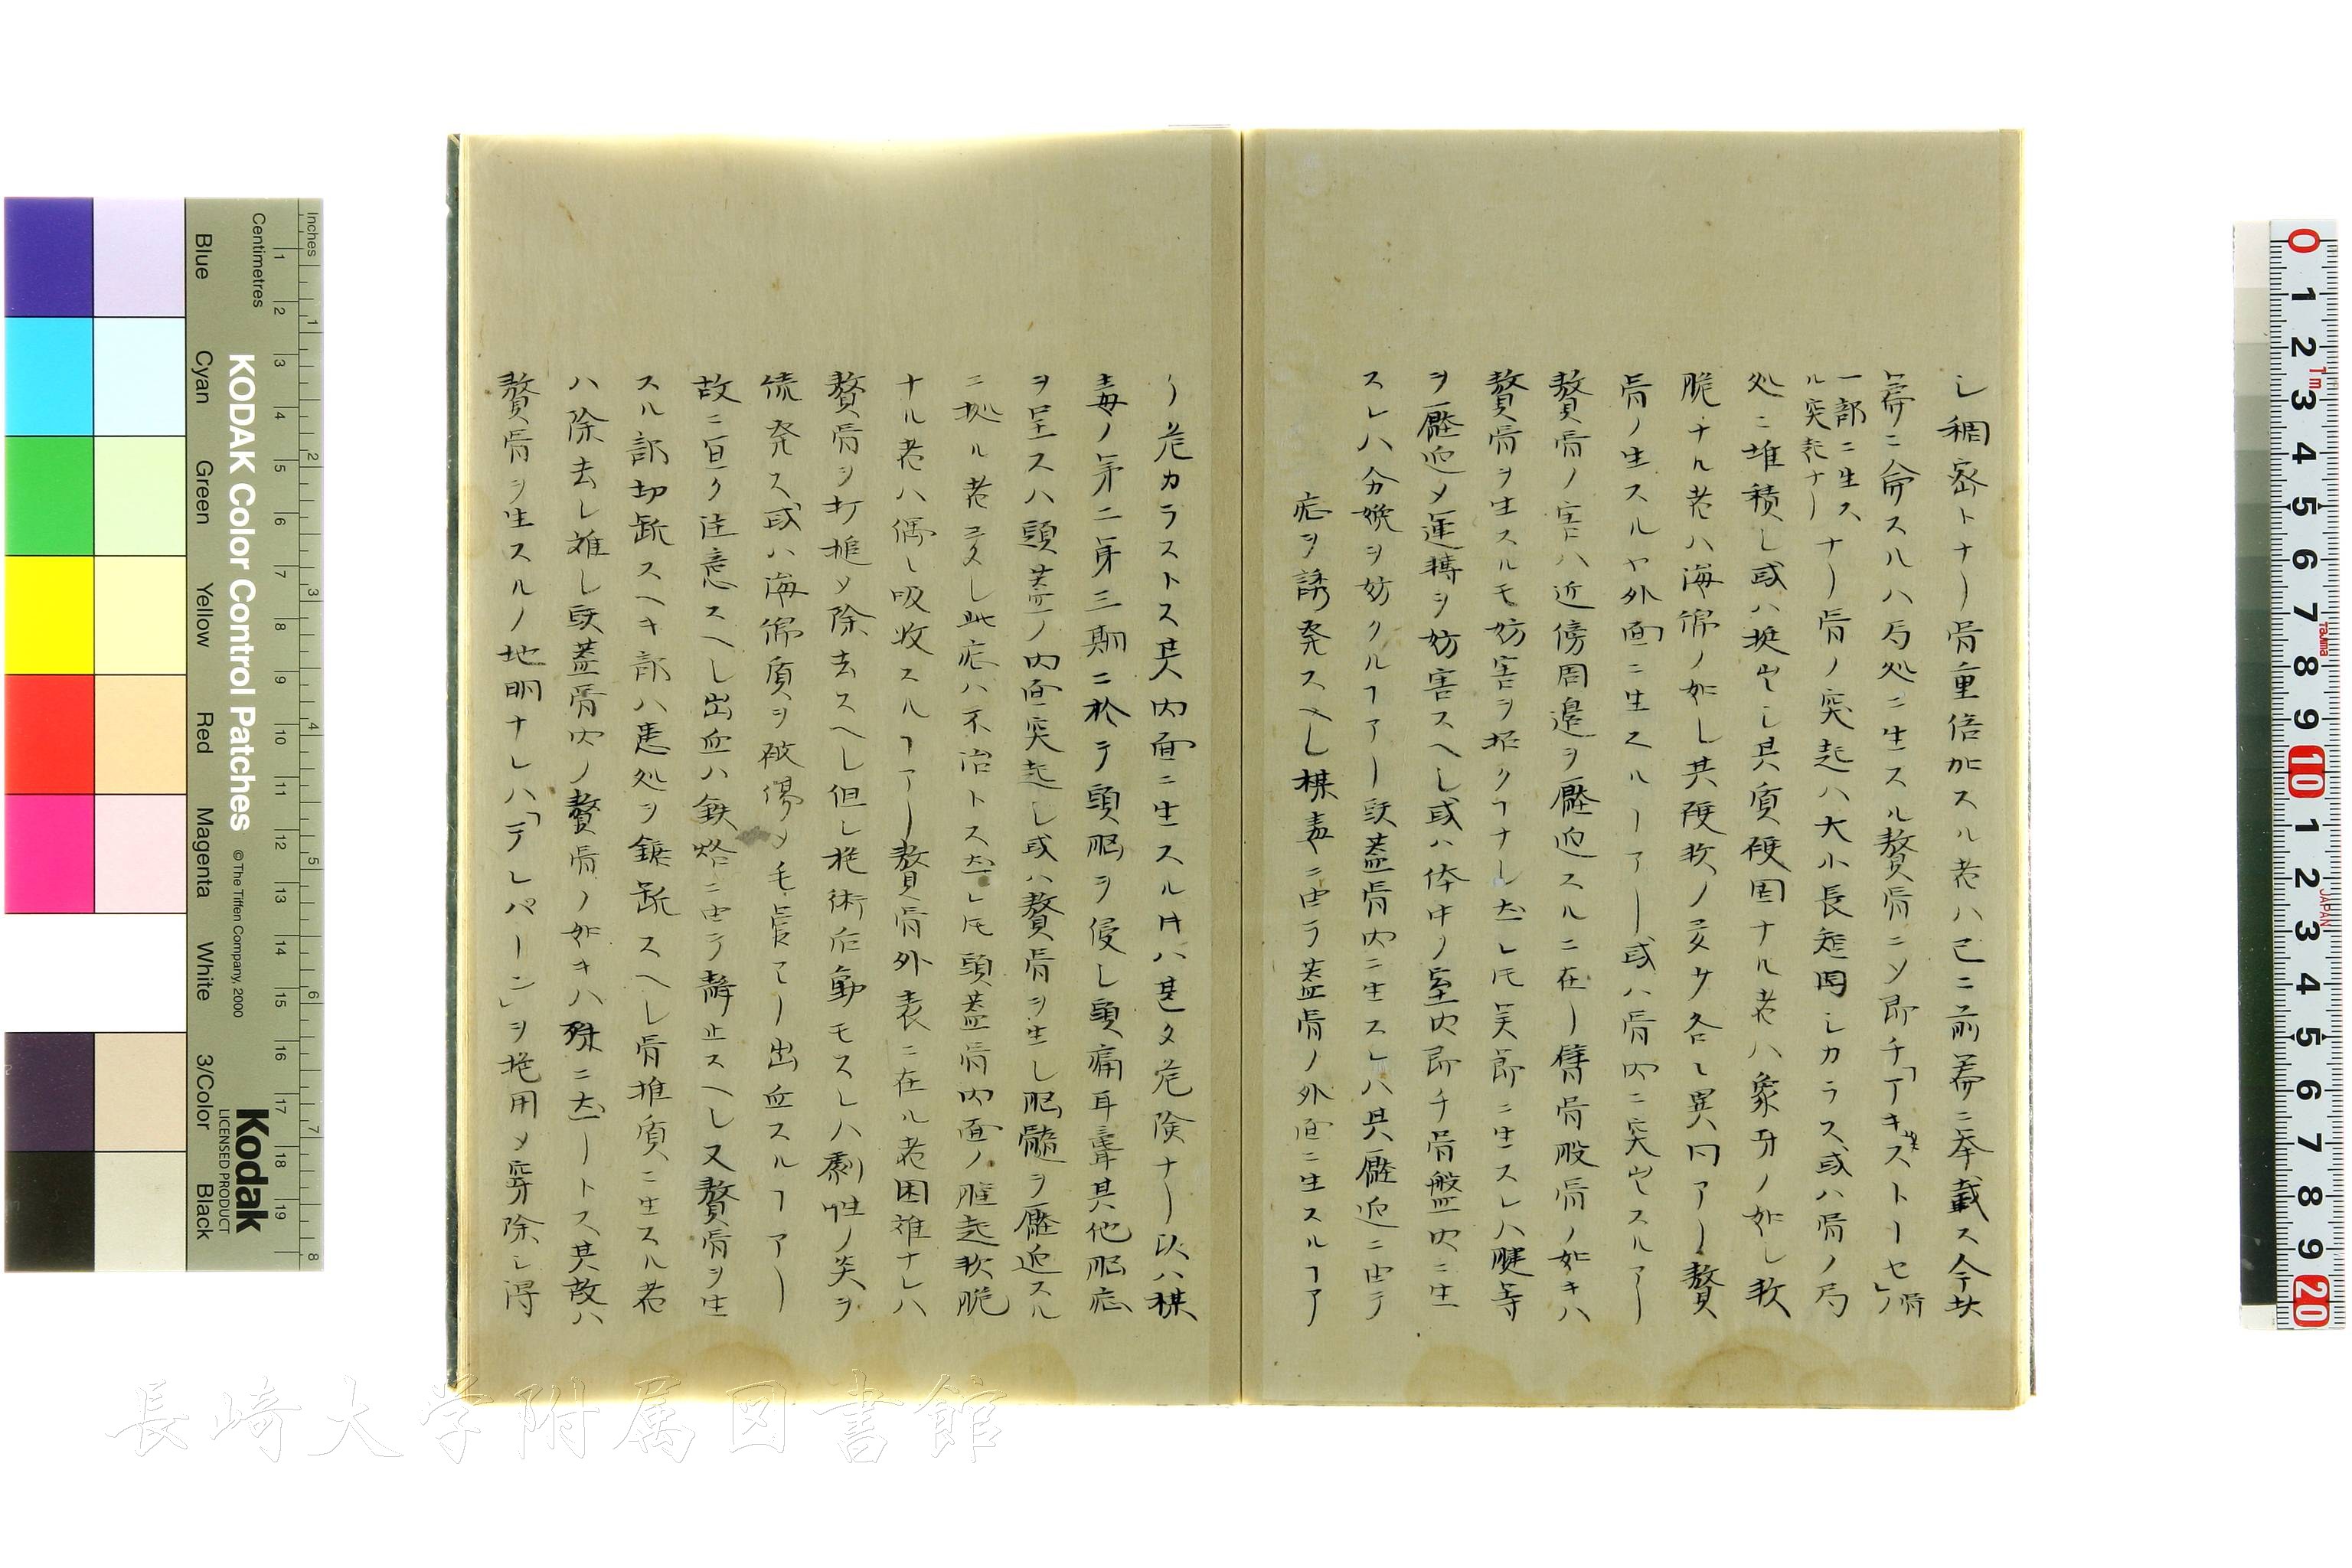 シ稠密トナリ骨重倍加スル者ハ已ニ前篇ニ奉載ス今此
篇ニ侖スルハ局処ニ生スル贅骨ニソ即チ「アキストーセ」骨ノ
一部ニ生ス
ル突起ナリ
ナリ骨ノ突起ハ大小長短固シカラス或ハ骨ノ局
処ニ堆積シ或ハ挺出シ其質硬固ナル者ハ象牙ノ如シ軟
脆ナル者ハ海綿ノ如シ其硬軟ノ異サ各〻異同アリ贅
骨ノ生スルヤ外面ニ生スルーアリ或ハ骨内ニ突出スルアリ
贅骨ノ害ハ近傍周邉ヲ壓迫スルニ在リ臂骨股骨ノ如キハ
贅骨ヲ生スルモ妨害ヲ招クヿナシ然レ𪜈関節ニ生スレハ腱等
ヲ壓迫メ運搏ヲ妨害スヘシ或ハ体中ノ室内即チ骨盤内ニ生
スレハ分娩ヲ妨クルヿアリ頭蓋骨内ニ生スレハ其壓迫ニ由テ
症ヲ誘発スヘシ楳毒ニ由テ蓋骨ノ外面ニ生スルヿア
リ危カラストス其内面ニ生スル片ハ甚タ危険ナリ以ハ楳
毒ノ第二第三期ニ於テ頭脳ヲ侵シ頭痛耳聾其他脳症
ヲ呈スハ頭蓋ノ内面突起シ或ハ贅骨ヲ生シ脳髓ヲ壓迫スル
ニ拠ル者多シ此症ハ不治トス然レ𪜈頭蓋骨内面ノ腫起軟脆
ナル者ハ偶〻吸收スルヿアリ贅骨外表ニ在ル者困難ナレハ
贅骨ヲ打搥メ除去スヘシ但シ施術后動モスレハ劇性ノ炎ヲ
続発ス或ハ海綿質ヲ破傷メ毛管ヨリ出血スルヿアリ
故ニ宜ク注意スヘシ出血ハ鉄烙ニ由テ静止スヘシ又贅骨ヲ生
スル部切断スヘキ部ハ患処ヲ鋸断スヘシ骨推質ニ生スル者
ハ除去シ難シ頭蓋骨内ノ贅骨ノ如キハ殊ニ然リトス其故ハ
贅骨ヲ生スルノ地明ナレハ「テレパーン」ヲ施用メ穿除シ得
KODAK Color Control Patches
Inches
Centimetres
Blue
Cyan
Green
Yellow
Red
Magenta
White
3/Color
Black
© The Tiffen Company, 2000
Kodak
LICENSED PRODUCT
長崎大学附属図書館